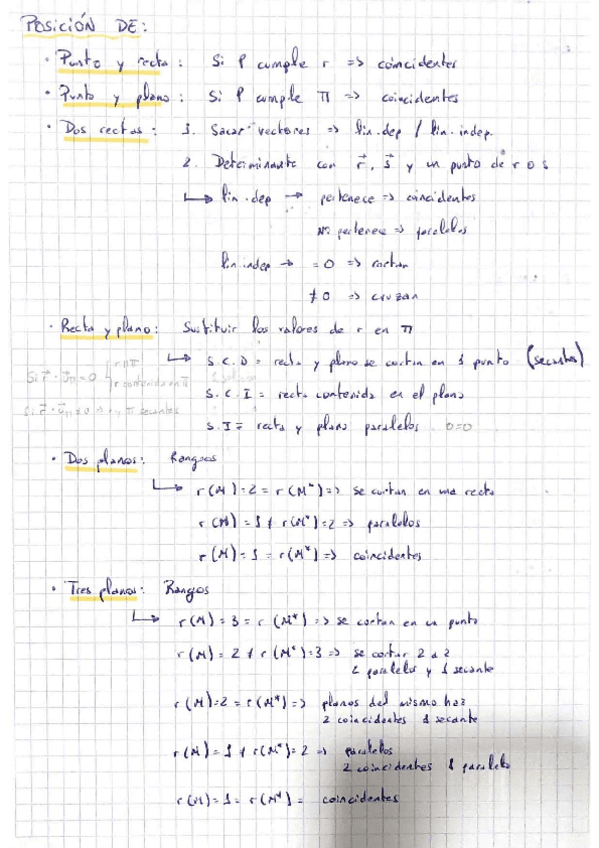 POSICIÓN DE:
· Punto y recta: Si P cumple r => coincidentes
· Punto y plano: Si P cumple π => coincidentes
· Dos rectas: 1. Sacar vectores => lin.dep / lin.indep.
2. Determinante con r⃗, s⃗ y un punto de r o s
↳ lin.dep → pertenece => coincidentes
No pertenece => paralelos
lin indep → = 0 => cortan
≠ 0 => cruzan
· Recta y plano: Sustituir los valores de r en π
↳ S.C.D = recta y plano se cortan en 1 punto (secantes)
Si r⃗ · v⃗π = 0 { r ∥ π
r contenida en π
S.C.I = recta contenida en el plano
Si r⃗ · v⃗π ≠ 0 => r y π secantes
S.I = recta y plano paralelos 0=0
· Dos planos: Rangos
↳ r(M)=2=r(M*) => se cortan en una recta
r(M)=1≠r(M*)=2 => paralelos
r(M)=1=r(M*) => coincidentes
· Tres planos: Rangos
↳ r(M)=3=r(M*) => se cortan en un punto
r(M)=2≠r(M*)=3 => se cortan 2 a 2
2 paralelos y 1 secante
r(M)=2=r(M*) => planos del mismo haz
2 coincidentes 1 secante
r(M)=1≠r(M*)=2 => paralelos
2 coincidentes 1 paralelo
r(M)=1=r(M*)= coincidentes